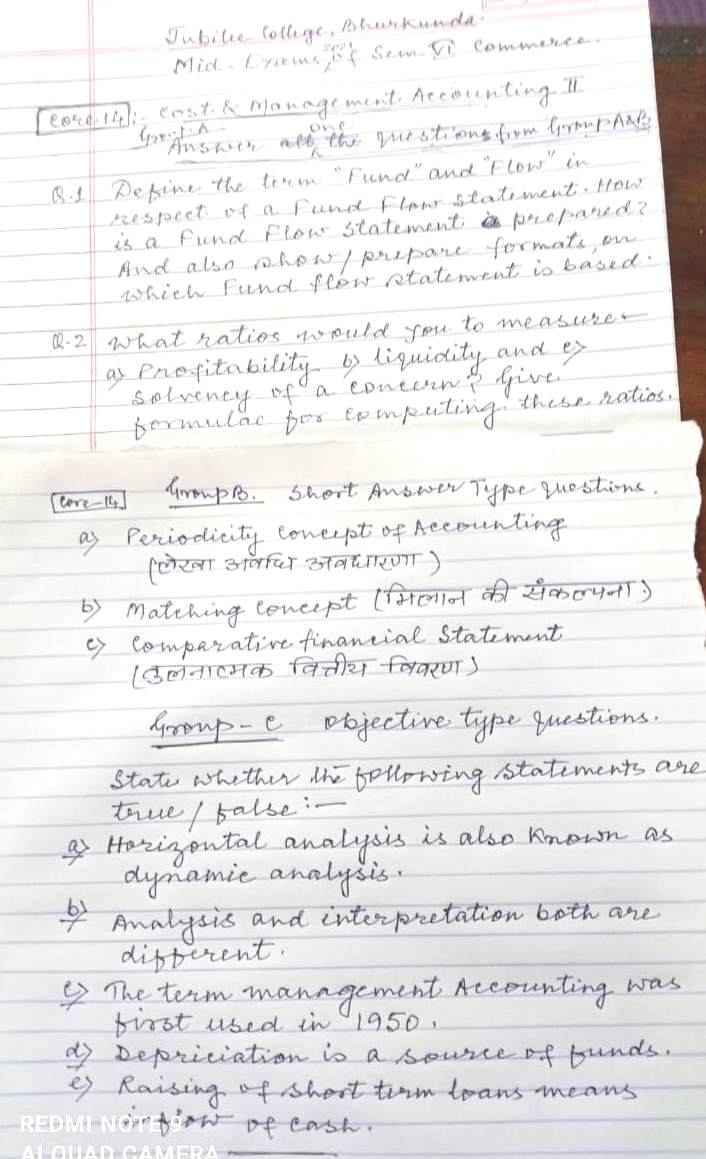 Jubilee College, Bhurkunda.
Mid-Exams, 2021 of Sem VI Commerce.
Core 14:- Cost & Management Accounting II
Group A
Answer one the questions from Group A&B
Q.1 Define the term "Fund" and "Flow" in
respect of a Fund Flow Statement. How
is a Fund Flow Statement prepared?
And also show/prepare formats, on
which Fund flow statement is based.
Q.2 What ratios would you to measure:-
a) Profitability b) liquidity and c)
Solvency of a concern? Give
formulae for computing these ratios.
Core-14 Group B. Short Answer Type questions.
a) Periodicity Concept of Accounting
(लेखा अवधि अवधारणा)
b) Matching Concept (मिलान की संकल्पना)
c) Comparative financial Statement
(तुलनात्मक वित्तीय विवरण)
Group-C Objective type questions.
State whether the following statements are
true / false :-
a) Horizontal analysis is also Known as
dynamic analysis.
b) Analysis and interpretation both are
different.
c) The term management Accounting was
first used in 1950.
d) Depriciation is a source of funds.
e) Raising of short term loans means
inflow of cash.
REDMI NOTE 9
AI QUAD CAMERA